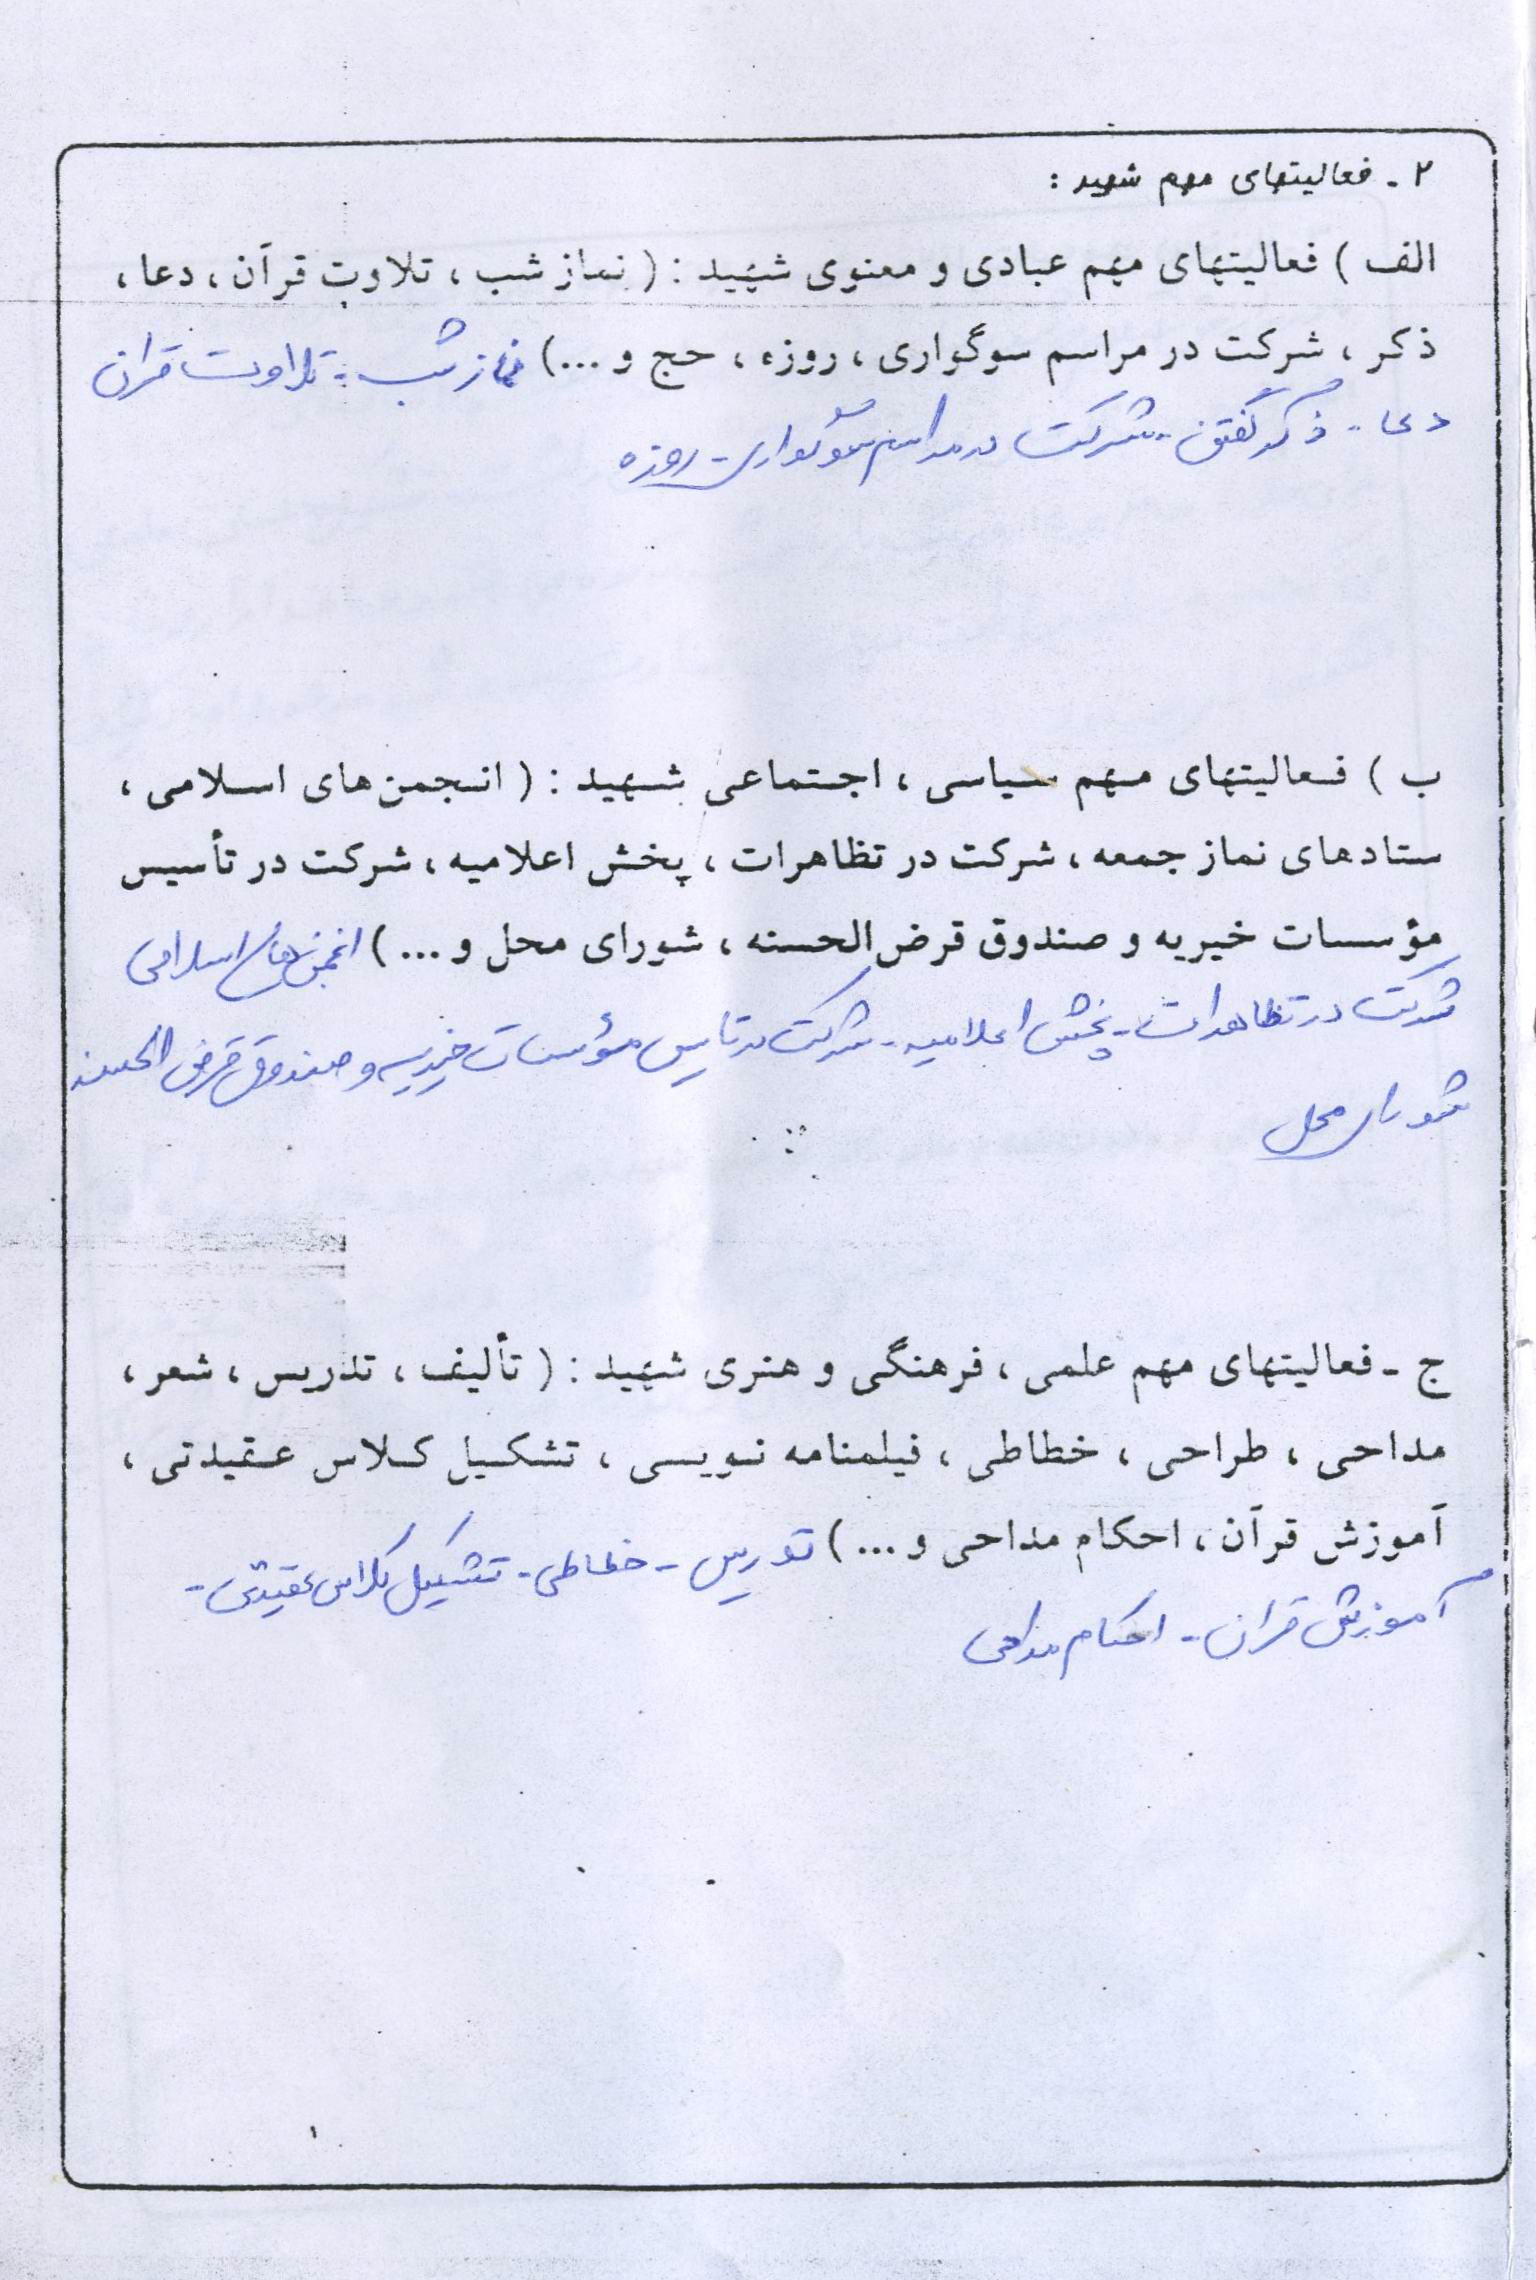 ۲ - فعالیتهای مهم شهید :
الف ) فعالیتهای مهم عبادی و معنوی شهید : ( نماز شب ، تلاوت قرآن ، دعا ،
ذکر ، شرکت در مراسم سوگواری ، روزه ، حج و ...) نماز شب - تلاوت قران
دعا - ذکر گفتن - شرکت در مراسم سوگواری - روزه
ب ) فعالیتهای مهم سیاسی ، اجتماعی شهید : ( انجمن‌های اسلامی ،
ستادهای نماز جمعه ، شرکت در تظاهرات ، پخش اعلامیه ، شرکت در تأسیس
مؤسسات خیریه و صندوق قرض‌الحسنه ، شورای محل و ... ) انجمن های اسلامی
شرکت در تظاهرات - پخش اعلامیه - شرکت در تاسیس مؤسسات خیریه و صندوق قرض الحسنه
شورای محل
ج - فعالیتهای مهم علمی ، فرهنگی و هنری شهید : ( تألیف ، تدریس ، شعر ،
مداحی ، طراحی ، خطاطی ، فیلمنامه نویسی ، تشکیل کلاس عقیدتی ،
آموزش قرآن ، احکام مداحی و ... ) تدریس - خطاطی - تشکیل کلاس عقیدتی -
آموزش قران - احکام مداحی